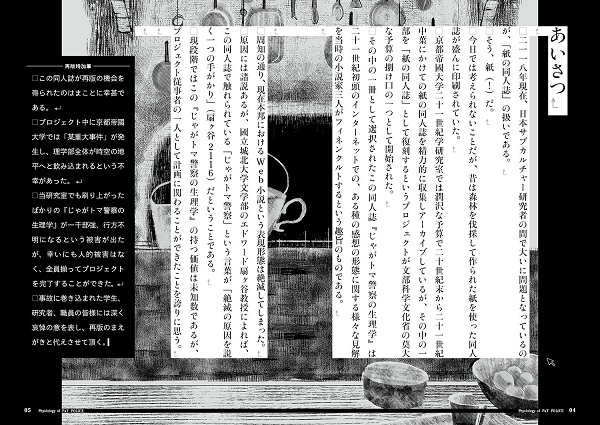 あいさつ
□二一一八年現在、日本サブカルチャー研究者の間で大いに問題となっているの
が、「紙の同人誌」の扱いである。
そう、紙（！）だ。
今日では考えられないことだが、昔は森林を伐採して作られた紙を使った同人
誌が盛んに印刷されていた。
京都帝國大学二十一世紀学研究室では潤沢な予算で二十世紀末から二十一世紀
中葉にかけての紙の同人誌を精力的に収集しアーカイブしているが、その中の一
部を「紙の同人誌」として復刻するというプロジェクトが文部科学文化省の莫大
な予算の捌け口の一つとして開始された。
その中の一冊として選択されたこの同人誌『じゃがトマ警察の生理学』は
二十一世紀初頭のインターネットでの、ある種の感想の形態に関する様々な見解
を当時の小説家三人がフィーチャルトするという趣旨のものである。
周知の通り、現在本邦におけるWeb小説という表現形態は絶滅してしまった。
原因には諸説あるが、國立城北大学文学部のエドワード扇ヶ谷教授によれば、
この同人誌で触れられている「じゃがトマ警察」という言葉が「絶滅の原因を説
く一つの手がかり」（扇ヶ谷2116）だということである。
現段階ではこの『じゃがトマ警察の生理学』の持つ価値は未知数であるが、
プロジェクト従事者の一人として計画に関わることができたことを誇りに思う。
再版特加筆
□この同人誌が再版の機会を
得られたのはまことに幸甚で
ある。
□プロジェクト中に京都帝國
大学では「某重大事件」が発
生し、理学部全体が時空の地
平へと飲み込まれるという不
幸があった。
□当研究室でも刷り上がった
ばかりの『じゃがトマ警察の
生理学』が一千部強、行方不
明になるという被害が出た
が、幸いにも人的被害はな
く、全員揃ってプロジェクト
を完了することができた。
□事故に巻き込まれた学生、
研究者、職員の皆様には深く
哀悼の意を表し、再版のまえ
がきと代えさせて頂く。
05 Physiology of PxT POLICE
Physiology of PxT POLICE 04